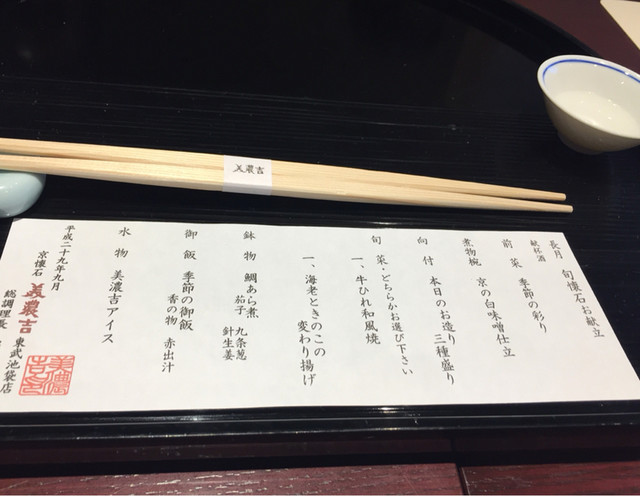 長月　旬懐石お献立
献杯酒
前　菜　季節の彩り
煮物椀　京の白味噌仕立
向　付　本日のお造り　三種盛り
旬　菜・どちらかお選び下さい
一、牛ひれ和風焼
一、海老ときのこの
変わり揚げ
鉢　物　鯛あら煮
茄子　九条葱
針生姜
御　飯　季節の御飯
香の物　赤出汁
水　物　美濃吉アイス
平成二十九年九月
京懐石　美濃吉　東武池袋店
総調理長
美濃吉
美濃吉